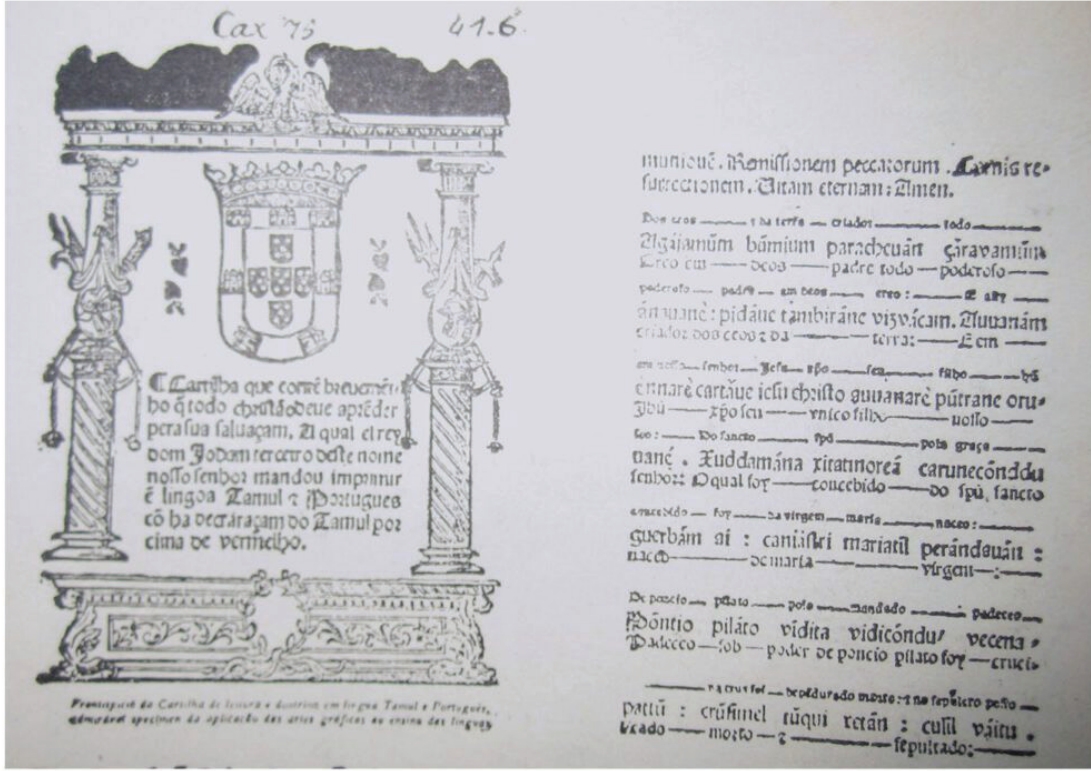 Cax 75 41.6
¶ Cartilha que contẽ breuemẽte
ho q̃ todo christão deue aprẽder
pera sua saluaçam. A qual el rey
dom Joham terceiro deste nome
nosso senhor mandou imprimir
ẽ lingoa Tamul z Portugues
cõ ha decraraçam do Tamul por
cima de vermelho.
Frontispício da Cartilha de leitura e doutrina em língua Tamul e Português,
admirável specimen da aplicação das artes gráficas ao ensino das línguas
munionẽ. Remissionem peccatorum. Carnis re-
surrectionem. Vitam eternam: Amen.
Dos ceos — z da terra — criador — todo —
Agaiamũm bũmium paracheuãn çãravamũm
Creo em — deos — padre todo — poderoso —
poderoso — padre — em deos — creo: — E
pidãue tãmbirãne vizvãcam. Auuanãm
criador dos ceos z da — terra: — E em
senhor — Jesu — xpõ — seu — filho — hũ
ennarẽ cartãue iesu christo auuanarẽ pũtrane oru-
Jhũ — xpõ seu — vnico filho — nosso —
soo: — Do sancto — spũ — pola graça —
uanẽ. Xuddamãna carunecõnddu
senhor: O qual foy — concebido — do spũ sancto
concebido — foy — da virgem — maria — naceo: —
guerbãm ai: caniastri mariatil perãndeuãn:
naceo — de maria — virgem —: —
De poncio — pilato — polo — mandado — padeceo —
Põntio pilãto vidita vidicõndu vecena-
Padeceo — sob — poder de poncio pilato foy — cruci-
— dependurado morto: z no sepulcro posto —
pattũ: crũsinel tũqui: cusil vãitu.
ficado — morto — z — sepultado: —